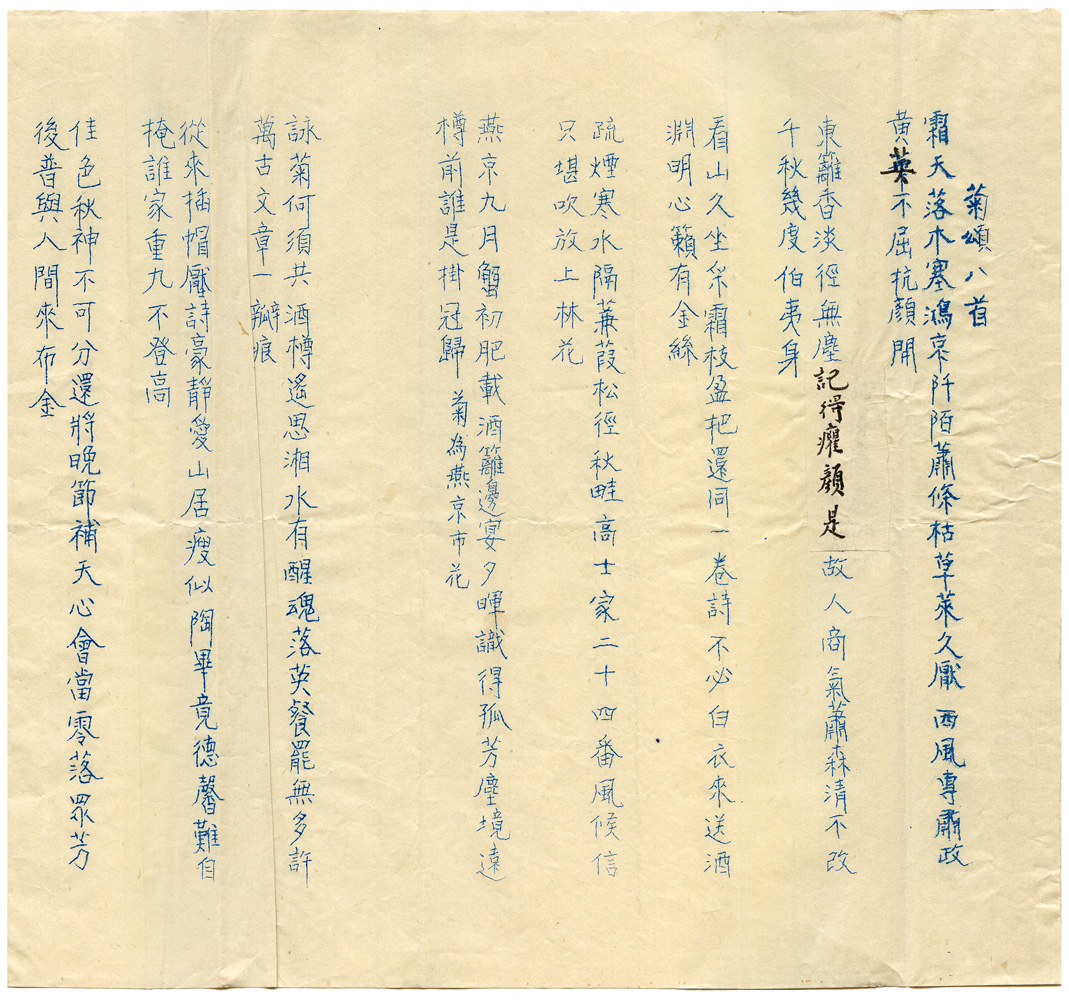 菊頌八首
霜天落木塞鴻哀阡陌蕭條枯草萊久厭西風專肅政
黃英不屈抗顏開
東籬香淡徑無塵記得癯顏是故人商氣蕭森清不改
千秋幾度伯夷身
看山久坐采霜枝盈把還同一卷詩不必白衣來送酒
淵明心籟有金絲
疏煙寒水隔蒹葭松徑秋畦高士家二十四番風候信
只堪吹放上林花
燕京九月蟹初肥載酒籬邊宴夕暉識得孤芳塵境遠
樽前誰是掛冠歸 菊為燕京市花
詠菊何須共酒樽遙思湘水有醒魂落英餐罷無多許
萬古文章一瓣痕
從來插帽壓詩豪靜愛山居瘦似陶畢竟德馨難自
掩誰家重九不登高
佳色秋神不可分還將晚節補天心會當零落眾芳
後普與人間來布金